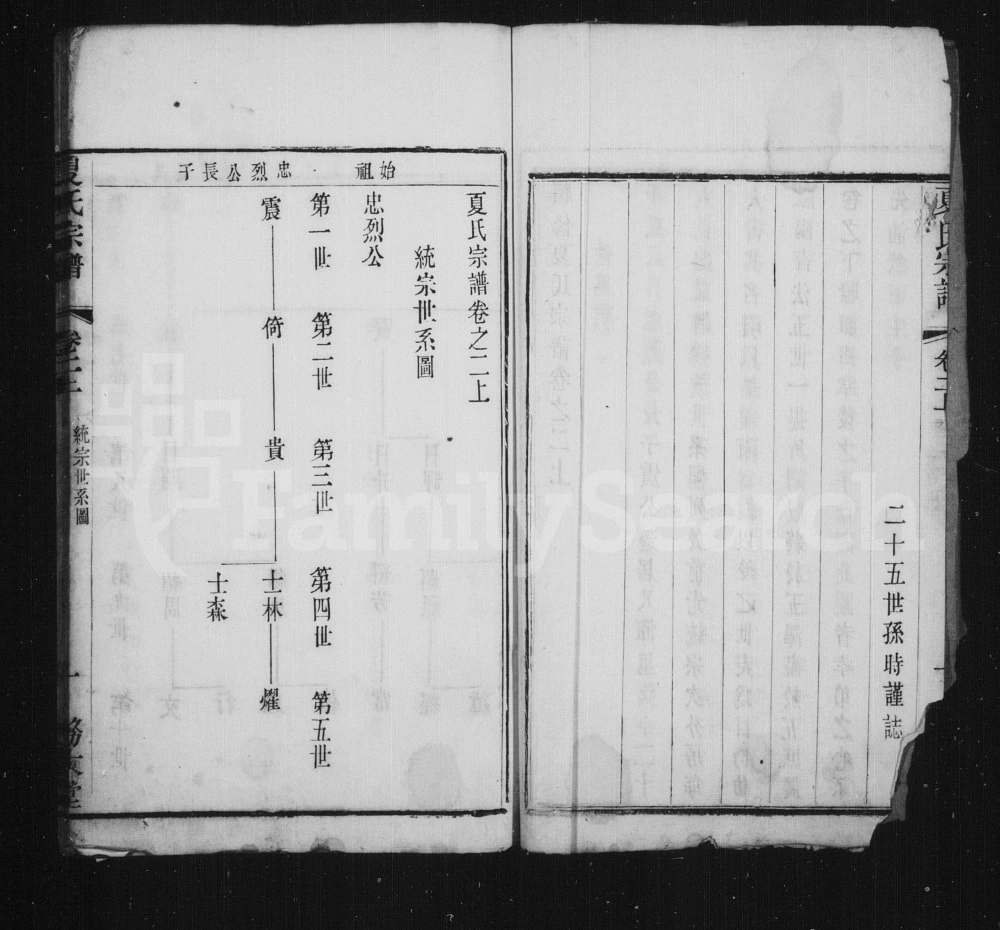 夏氏宗譜
卷二上
二十五世孫時謹誌
夏氏宗譜卷之二上
統宗世系圖
始祖
忠烈公
第一世 第二世 第三世 第四世 第五世
忠烈公長子
震 倚 貴 士林 燿
士森
夏氏宗譜
卷二上
統宗世系圖
一
FamilySearch